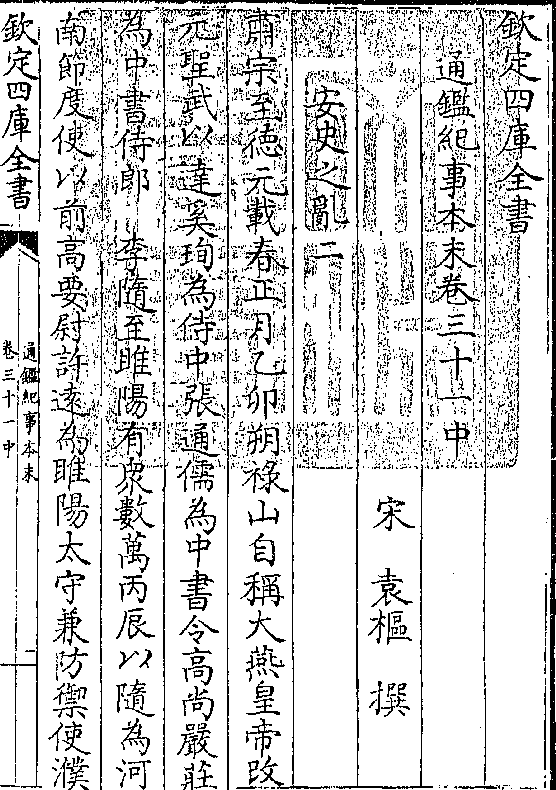 欽定四庫全書
通鑑紀事本末卷三十一中
宋 袁樞 撰
安史之亂二
肅宗至德元載春正月乙卯朔祿山自稱大燕皇帝改
元聖武以達奚珣為侍中張通儒為中書令高尚嚴莊
為中書侍郎 李隨至睢陽有衆數萬丙辰以隨為河
南節度使以前高要尉許遠為睢陽太守兼防禦使濮
欽定四庫全書
通鑑紀事本末
卷三十一中
一